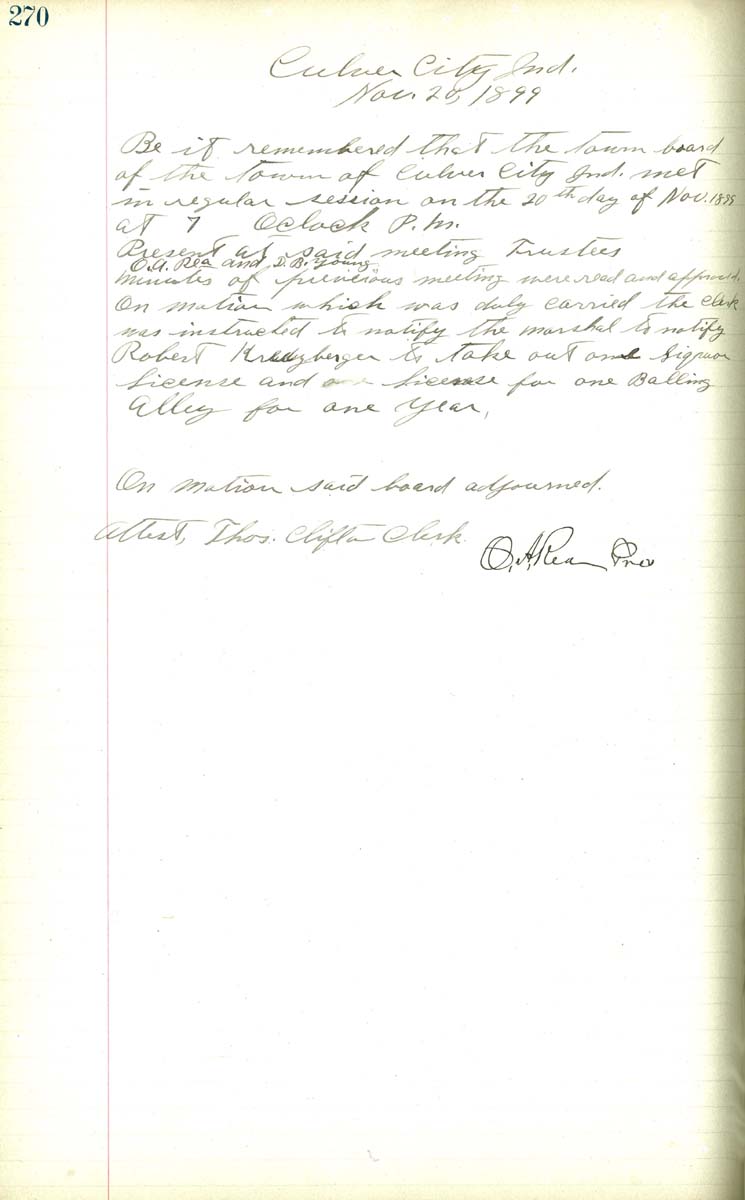 270
Culver City Ind.
Nov. 20, 1899
Be it remembered that the town board
of the town of Culver City Ind. met
in regular session on the 20th day of Nov. 1899
at 7 Oclock P.M.
Present at said meeting Trustees
O.A. Rea and D.B. Young
minutes of previous meeting were read and approved.
On motion which was duly carried the clerk
was instructed to notify the marshal to notify
Robert Kreuzberger to take out one liquor
license and license for one Balling
Alley for one year,
On motion said board adjourned.
Attest, Thos. Clifton Clerk.
O.A. Rea Pres